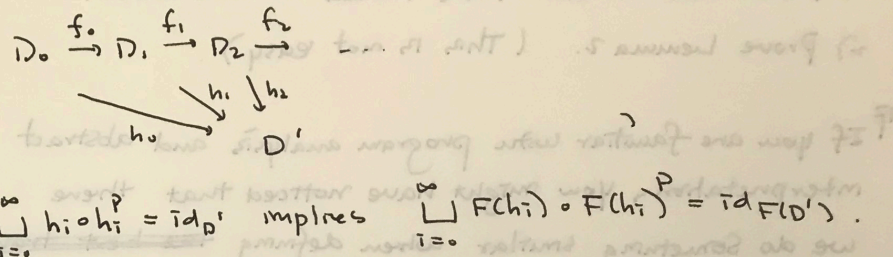 f₀ f₁ f₂
D₀ → D₁ → D₂ → ....
h₀ h₁ h₂
D'
∞⊔i=0 hᵢ∘hᵢᴾ = id_D' implies ∞⊔i=0 F(hᵢ)∘F(hᵢ)ᴾ = id_F(D').